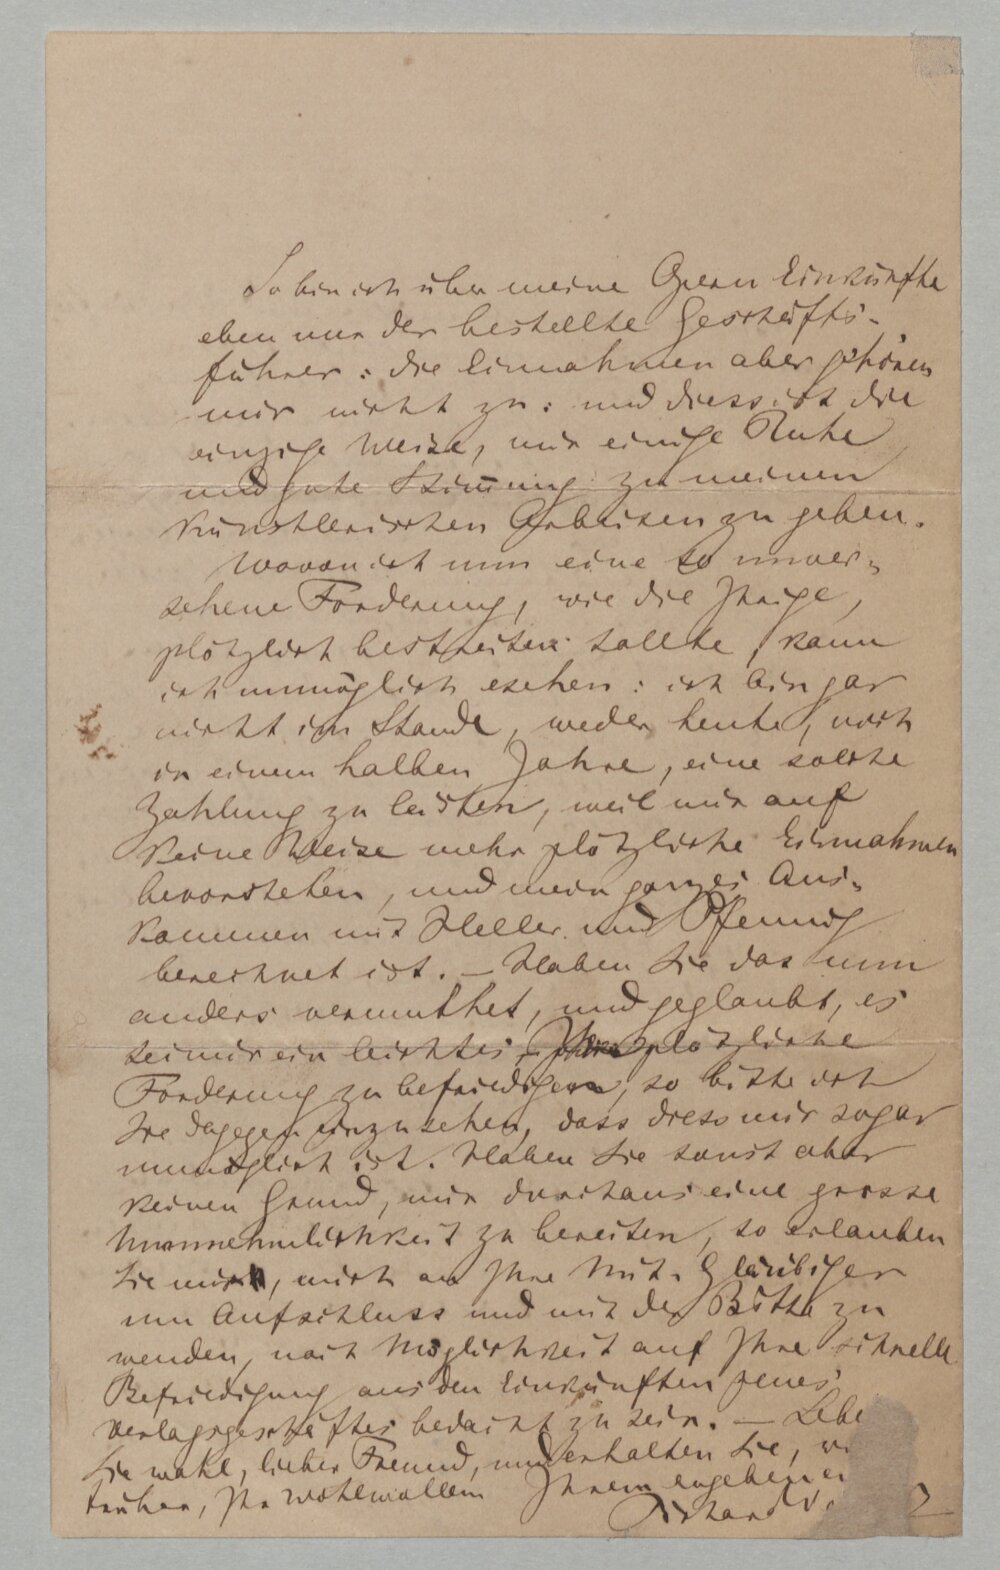 So bin ich über meine Opern Einkünfte
eben nur der bestellte Geschäfts-
führer: die Einnahmen aber gehören
mir nicht zu: und diess ist die
einzige Weise, mir einige Ruhe
und gute Stimmung zu meinen
künstlerischen Arbeiten zu geben.
Wovon ich nun eine so unver-
sehene Forderung, wie die Ihrige,
plötzlich bestreiten sollte, kann
ich unmöglich ersehen: ich bin gar
nicht im Stande, weder heute, noch
in einem halben Jahre, eine solche
Zahlung zu leisten, weil mir auf
keine Weise mehr plötzliche Einnahmen
bevorstehen, und mein ganzes Aus-
kommen mit Heller und Pfennig
berechnet ist. – Haben Sie das nun
anders vermuthet, und geglaubt, es
sei mir ein leichtes, Ihre plötzliche
Forderung zu befriedigen, so bitte ich
Sie dagegen einzusehen, dass diess mir sogar
unmöglich ist. Haben Sie sonst aber
keinen Grund, mir durchaus eine grosse
Unannehmlichkeit zu bereiten, so erlauben
Sie mir, mich an Ihre Mit-Gläubiger
um Aufschluss und mit der Bitte zu
wenden, nach Möglichkeit auf Ihre schnelle
Befriedigung aus den Einkünften jenes
Verlagsgeschäftes bedacht zu sein. – Lebe
Sie wohl, lieber Freund, und erhalten Sie,
früher, Ihr Wohlwollen Ihrem ergebenen
Richard